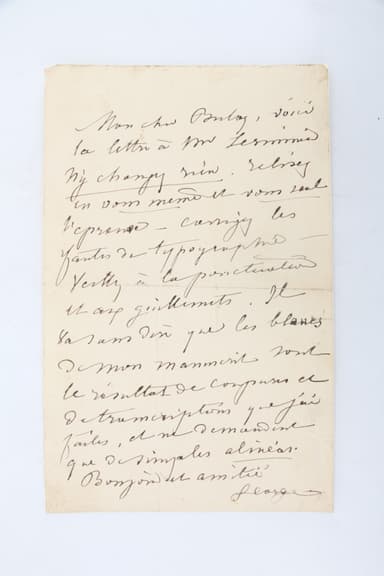 Mon cher Buloz, voici
la lettre à Mr Lerminier
N'y changez rien. relisez
en vous même et vous seul
l'épreuve – corrigez les
fautes de typographie –
Veillez à la ponctuation
et aux guillemets. Il
va sans dire que les blancs
de mon manuscrit sont
le résultat de coupures et
de transcriptions que j'ai
faites, et ne demandent
que de simples alinéas.
Bonjour et amitié
George